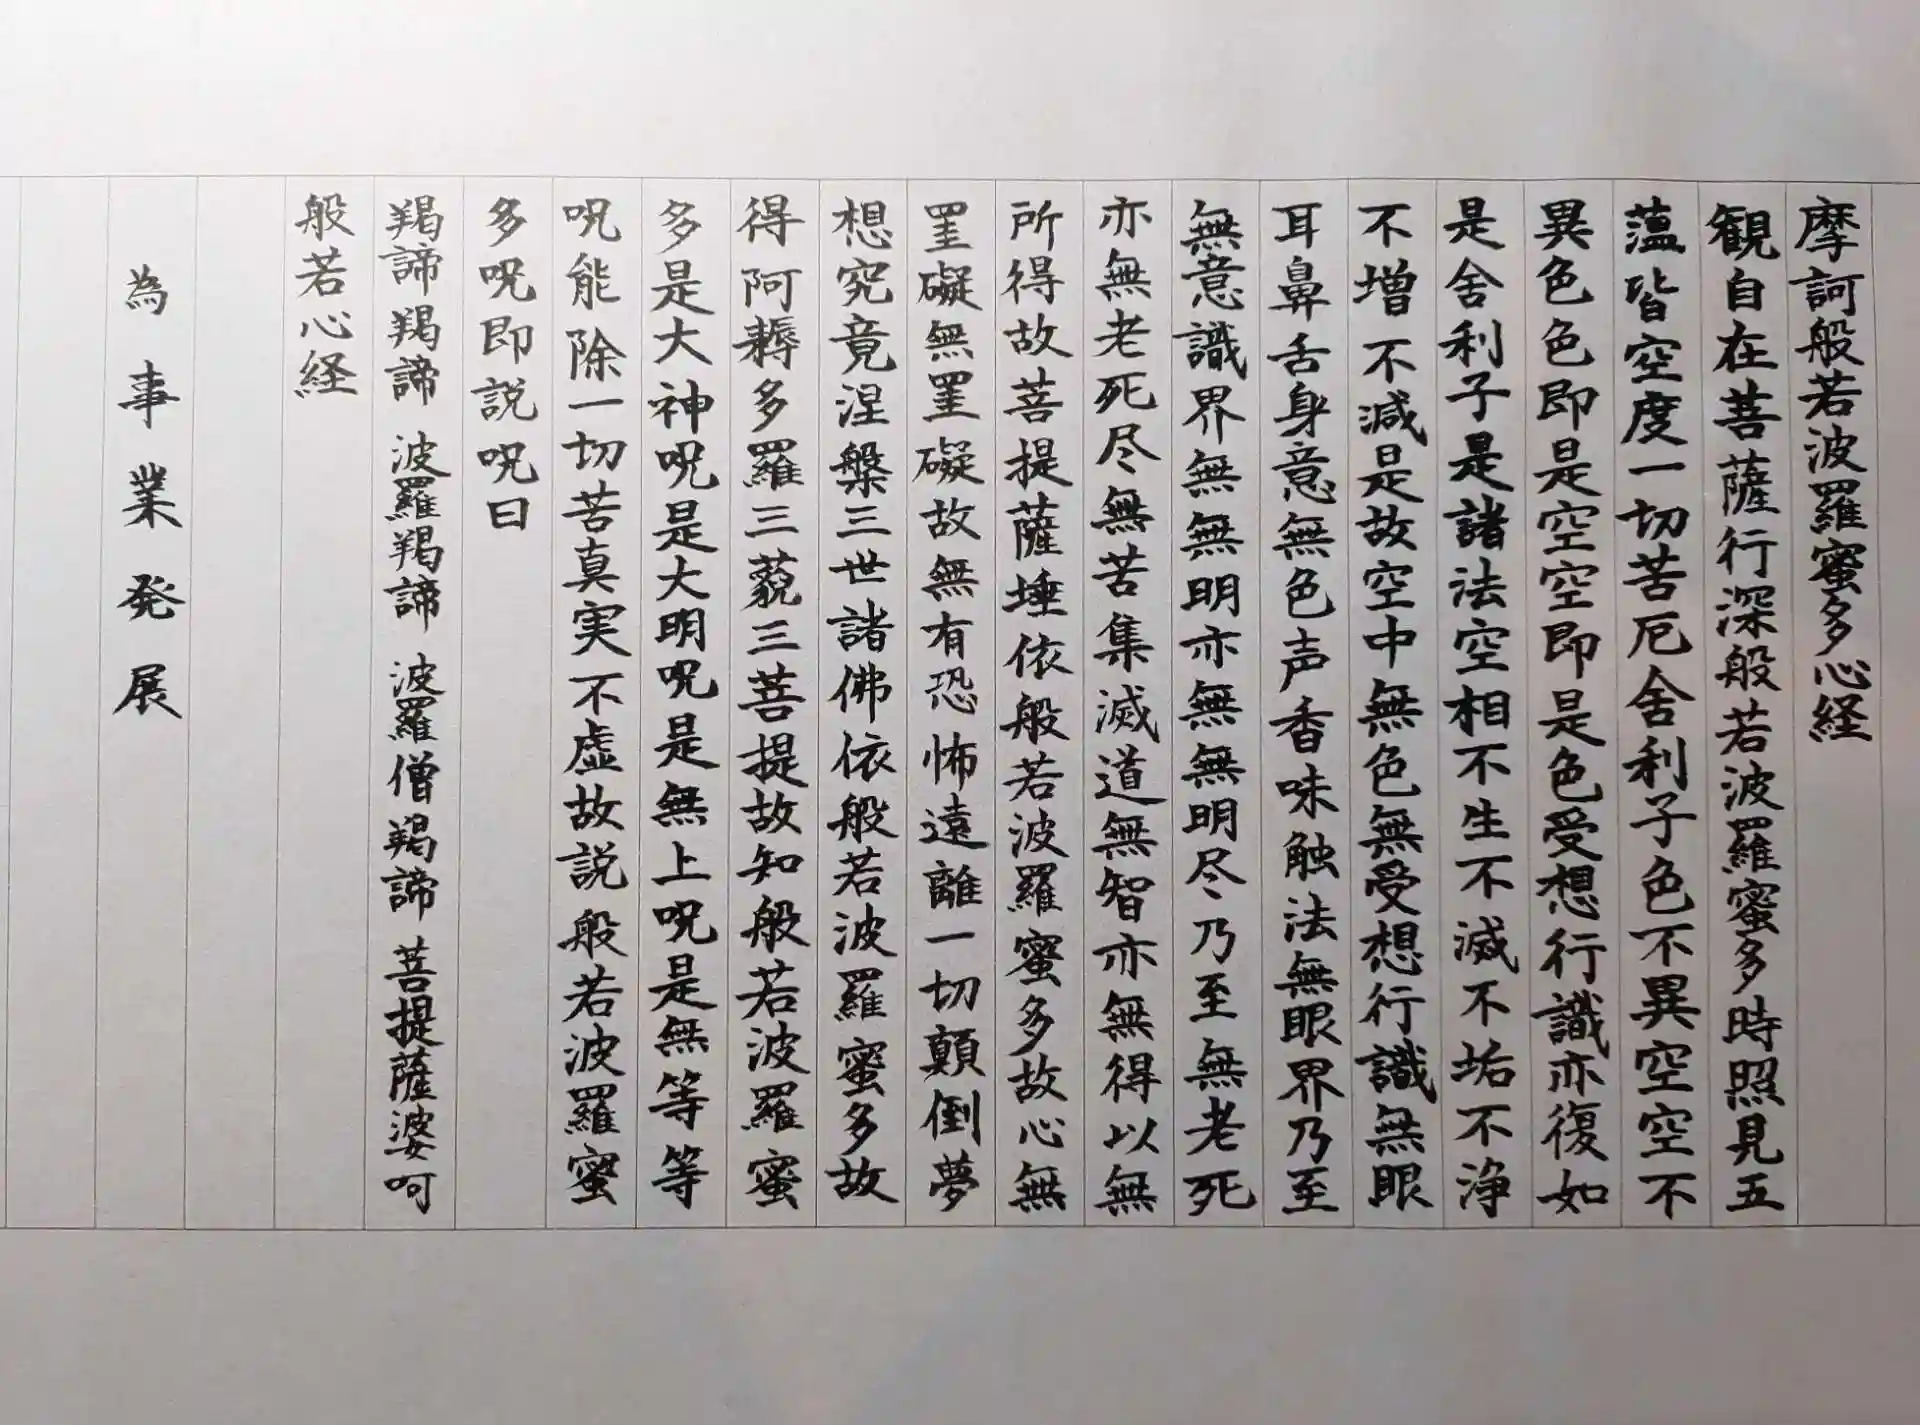 摩訶般若波羅蜜多心経
観自在菩薩行深般若波羅蜜多時照見五
薀皆空度一切苦厄舍利子色不異空空不
異色色即是空空即是色受想行識亦復如
是舍利子是諸法空相不生不滅不垢不浄
不増不減是故空中無色無受想行識無眼
耳鼻舌身意無色声香味触法無眼界乃至
無意識界無無明亦無無明尽乃至無老死
亦無老死尽無苦集滅道無智亦無得以無
所得故菩提薩埵依般若波羅蜜多故心無
罣礙無罣礙故無有恐怖遠離一切顛倒夢
想究竟涅槃三世諸佛依般若波羅蜜多故
得阿耨多羅三藐三菩提故知般若波羅蜜
多是大神呪是大明呪是無上呪是無等等
呪能除一切苦真実不虚故説般若波羅蜜
多呪即説呪曰
羯諦羯諦 波羅羯諦 波羅僧羯諦 菩提薩婆呵
般若心経
為事業発展